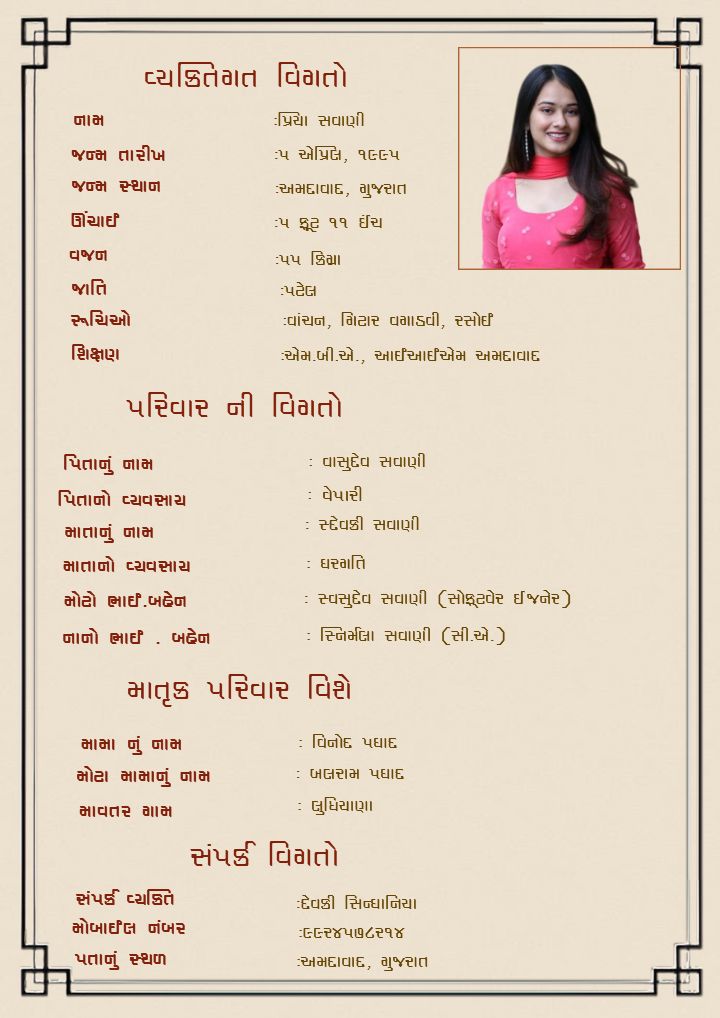 વ્યક્તિગત વિગતો
નામ :પ્રિયા સવાણી
જન્મ તારીખ :૫ એપ્રિલ, ૧૯૯૫
જન્મ સ્થાન :અમદાવાદ, ગુજરાત
ઊંચાઈ :૫ ફૂટ ૧૧ ઇંચ
વજન :૫૫ કિગ્રા
જાતિ :પટેલ
રૂચિઓ :વાંચન, ગિટાર વગાડવી, રસોઈ
શિક્ષણ :એમ.બી.એ., આઈઆઈએમ અમદાવાદ
પરિવાર ની વિગતો
પિતાનું નામ : વાસુદેવ સવાણી
પિતાનો વ્યવસાય : વેપારી
માતાનું નામ : સ્દેવકી સવાણી
માતાનો વ્યવસાય : ઘરગતિ
મોટો ભાઈ.બહેન : સ્વસુદેવ સવાણી (સોફ્ટવેર ઈજનેર)
નાનો ભાઈ . બહેન : સ્નિર્મલા સવાણી (સી.એ.)
માતૃક પરિવાર વિશે
મામા નું નામ : વિનોદ પઘાદ
મોટા મામાનું નામ : બલરામ પઘાદ
માવતર ગામ : લુધિયાણા
સંપર્ક વિગતો
સંપર્ક વ્યક્તિ :દેવકી સિન્ધાનિયા
મોબાઈલ નંબર :૯૯૨૪૫૭૮૨૧૪
પતાનું સ્થળ :અમદાવાદ, ગુજરાત